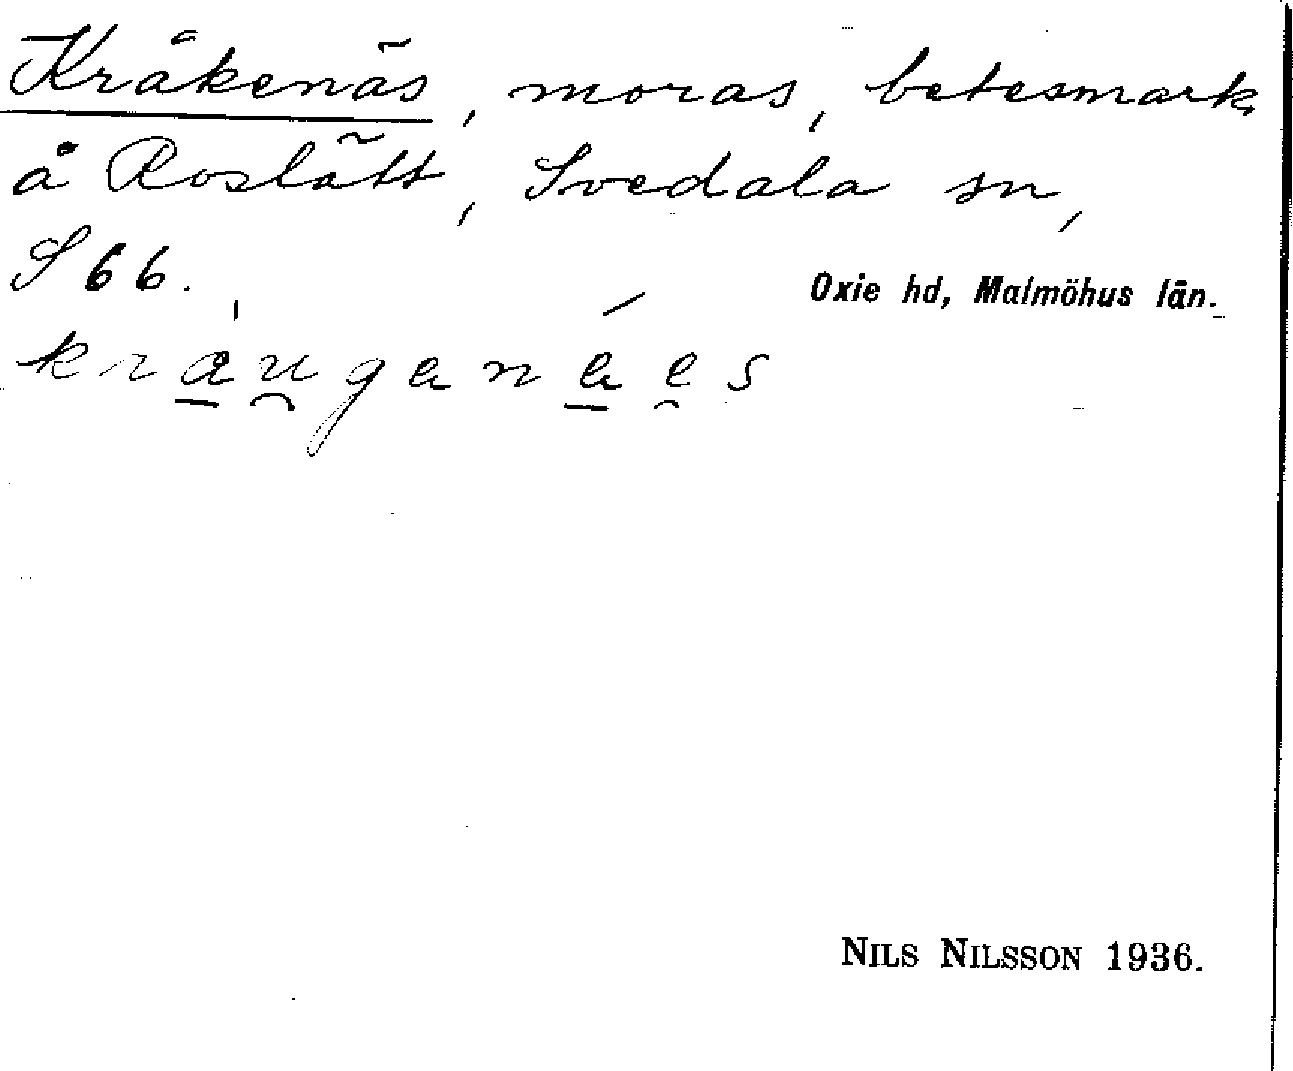 Kråkenäs, moras, betesmark
å Roslätt, Svedala sn,
S 66.
Oxie hd, Malmöhus län.
NILS NILSSON 1936.